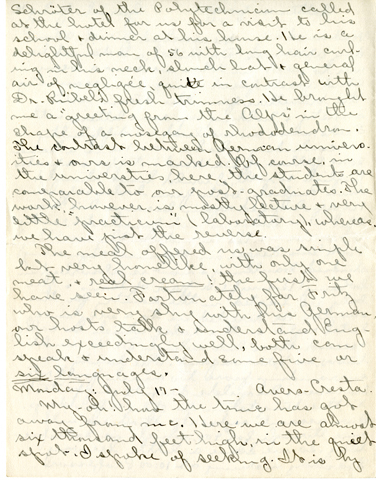 Schröter of the Polytechnicum called
at the hotel for us for a visit to his
school & dinner at his house. He is a
delightful man of 56 with long hair curl-
ing in his neck, slouch hat & general
air of negligée quite in contrast with
Dr. fresh trimness. He brought
me a "greeting from the Alps" in the
shape of a nosegay of rhododendron.
The contrast between German univers-
ities & ours is marked. Of course, in
the universities here the students are
comparable to our post-graduates. The
work however is mostly lecture & very
little "practicum" (laboratory), whereas
we have just the reverse.
The meal offered us was simple
but very homelike with only one
meat, & real cream, the first we
have seen. Fortunately for Fritz
who is very shy with his German
our hosts talk & understand Eng-
lish exceedingly well, both can
speak & understand some five or
six languages.
Monday, July 17 - Avers-Cresta.
My, oh! how the time has got
away from me. Here we are almost
six thousand feet high, in the quiet
spot I spoke of seeking. It is by